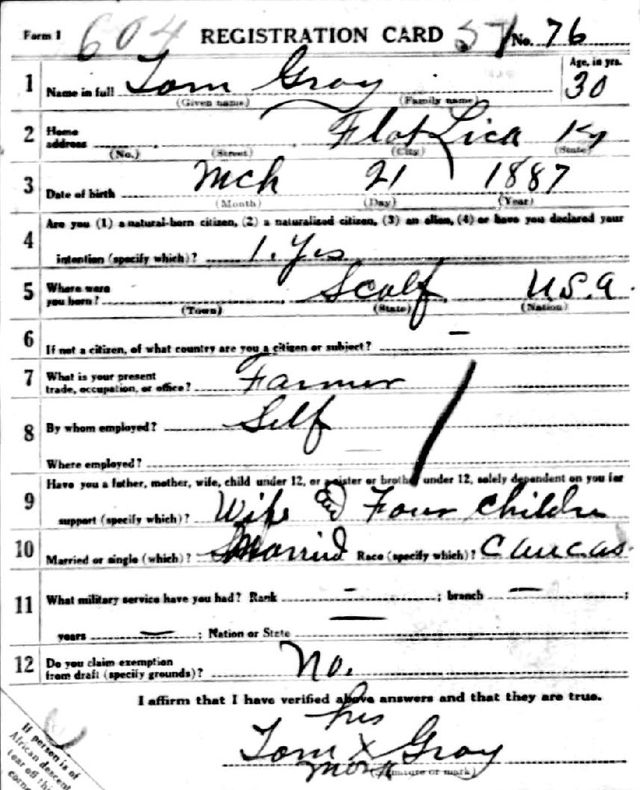 Form 1 604 REGISTRATION CARD No. 76
1 Name in full Tom Gray Age, in yrs. 30
(Given name) (Family name)
2 Home address Flat Lick Ky
(No.) (Street) (City) (State)
3 Date of birth Mch 21 1887
(Month) (Day) (Year)
4 Are you (1) a natural-born citizen, (2) a naturalized citizen, (3) an alien, (4) or have you declared your
intention (specify which)? 1. Yes
5 Where were you born? Scalf U.S.A.
(Town) (State) (Nation)
6 If not a citizen, of what country are you a citizen or subject? –
7 What is your present trade, occupation, or office? Farmer
8 By whom employed? Self
Where employed?
9 Have you a father, mother, wife, child under 12, or a sister or brother under 12, solely dependent on you for
support (specify which)? Wife and Four Children
10 Married or single (which)? Married Race (specify which)? Caucas.
11 What military service have you had? Rank – ; branch – ;
years – ; Nation or State –
12 Do you claim exemption from draft (specify grounds)? No.
I affirm that I have verified above answers and that they are true.
his
Tom X Gray
mark
(Signature or mark)
If person is of
African descent
tear off this
corner